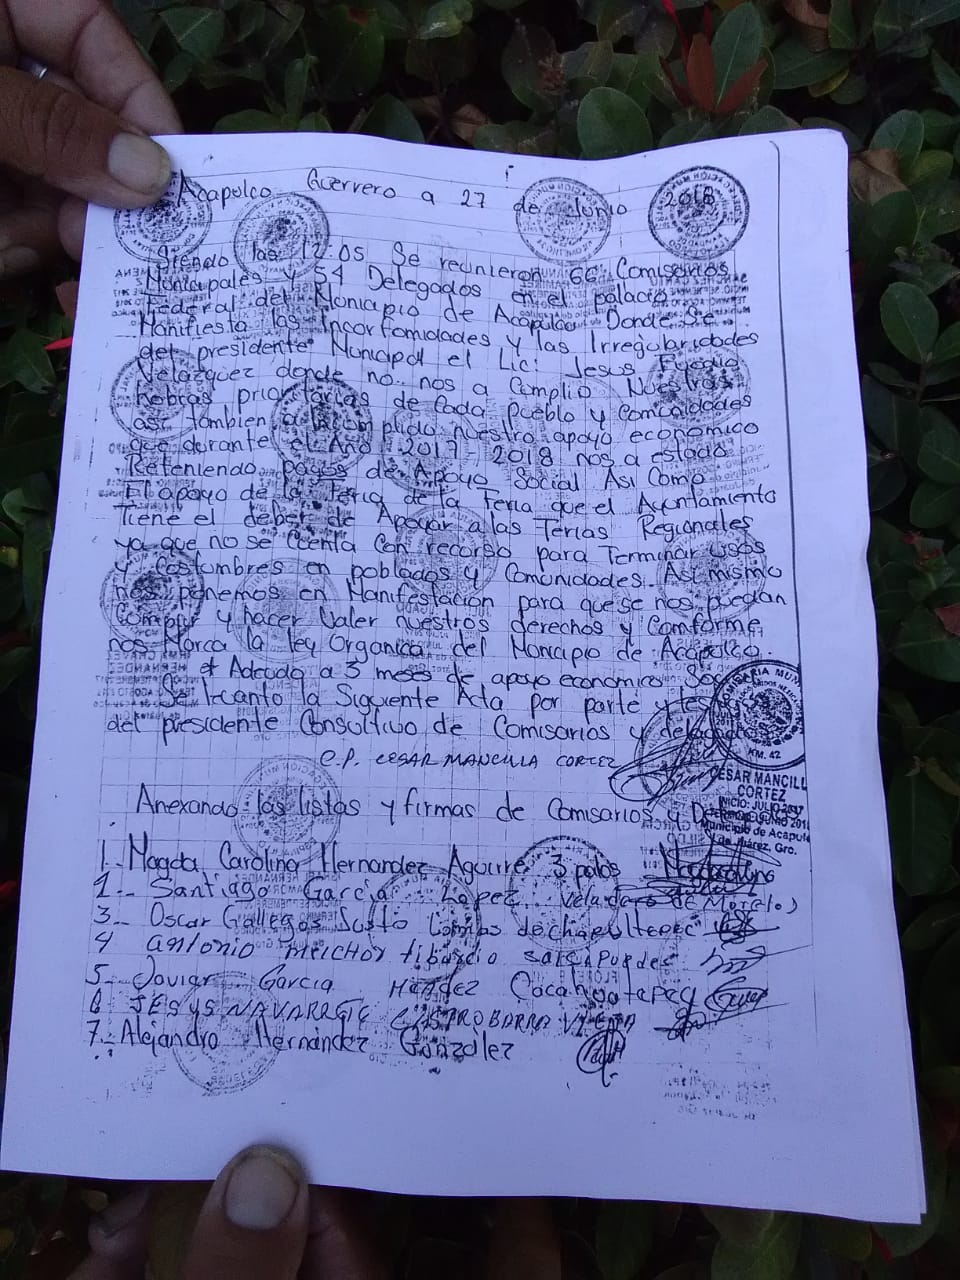 Acapulco Guerrero a 27 de Junio 2018
Siendo las 12:05 Se reunieron 66 Comisarios
Municipales y 54 Delegados en el palacio
Federal del Municipio de Acapulco Donde Se
Manifiesta las Incorfomidades y las Irregularidades
del presidente Municipal el Lic: Jesus
Velazquez donde no nos a Cumplio Nuestras
hobras prioritarias de Cada Pueblo y Comunidades
asi tambien a in complido nuestro apoyo economico
que durante el Año 2017 - 2018 nos a estado
Reteniendo pagos de Apoyo Social Asi Como
El apoyo de la Feria de la Feria que el Ayuntamiento
Tiene el deber de Apoyar a las Ferias Regionales
ya que no se Cuenta Con recurso para Terminar usos
y Costumbres en poblados y Comunidades. Asi mismo
nos ponemos en Manifestacion para que se nos puedan
Complir y hacer Valer nuestros derechos y Comforme
nos Marca la ley Organica del Monicipio de Acapulco.
et Adeudo a 3 meses de apoyo economico
Se levanto la Siguiente Acta por parte y
del presidente Consultivo de Comisarios y delegados
C.P. CESAR MANCILLA CORTEZ
KM. 42
CESAR MANCILL
CORTEZ
INICIO: JULIO 2017
Municipio de Acapul
de Juárez, Gro.
Anexando las listas y firmas de Comisarios y
1.- Magda Carolina Hernandez Aguirre 3 palos
2.- Santiago Garcia Lopez de Morelos
3.- Oscar Gallegos Justo Lomas de chapultepec
4 antonio Melchor tiburcio salsapuedes
5.- Javiar Garcia Mendez Cacahuatepec
6 JESUS NAVARRETE CASTRO BARRA VIEJA
7.- Alejandro Hernández González